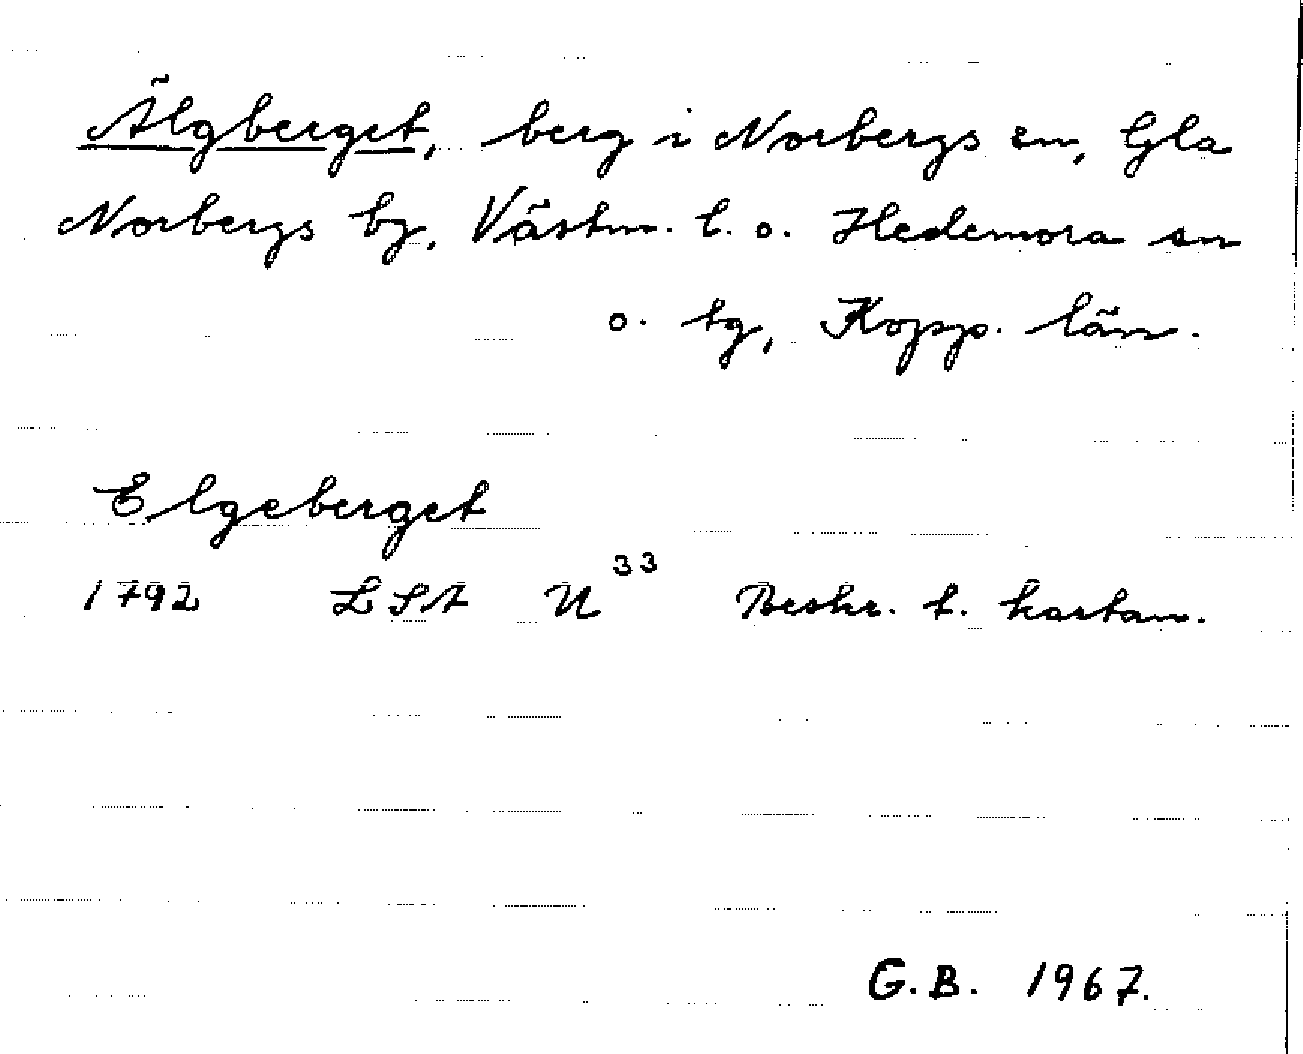 Älgberget, berg i Norbergs sn, Gla
Norbergs bg, Västm. l. o. Hedemora sn
o. tg, Kopp. län.
Elgeberget
1792 LSA U³³ Beskr. t. kartan.
G.B. 1967.